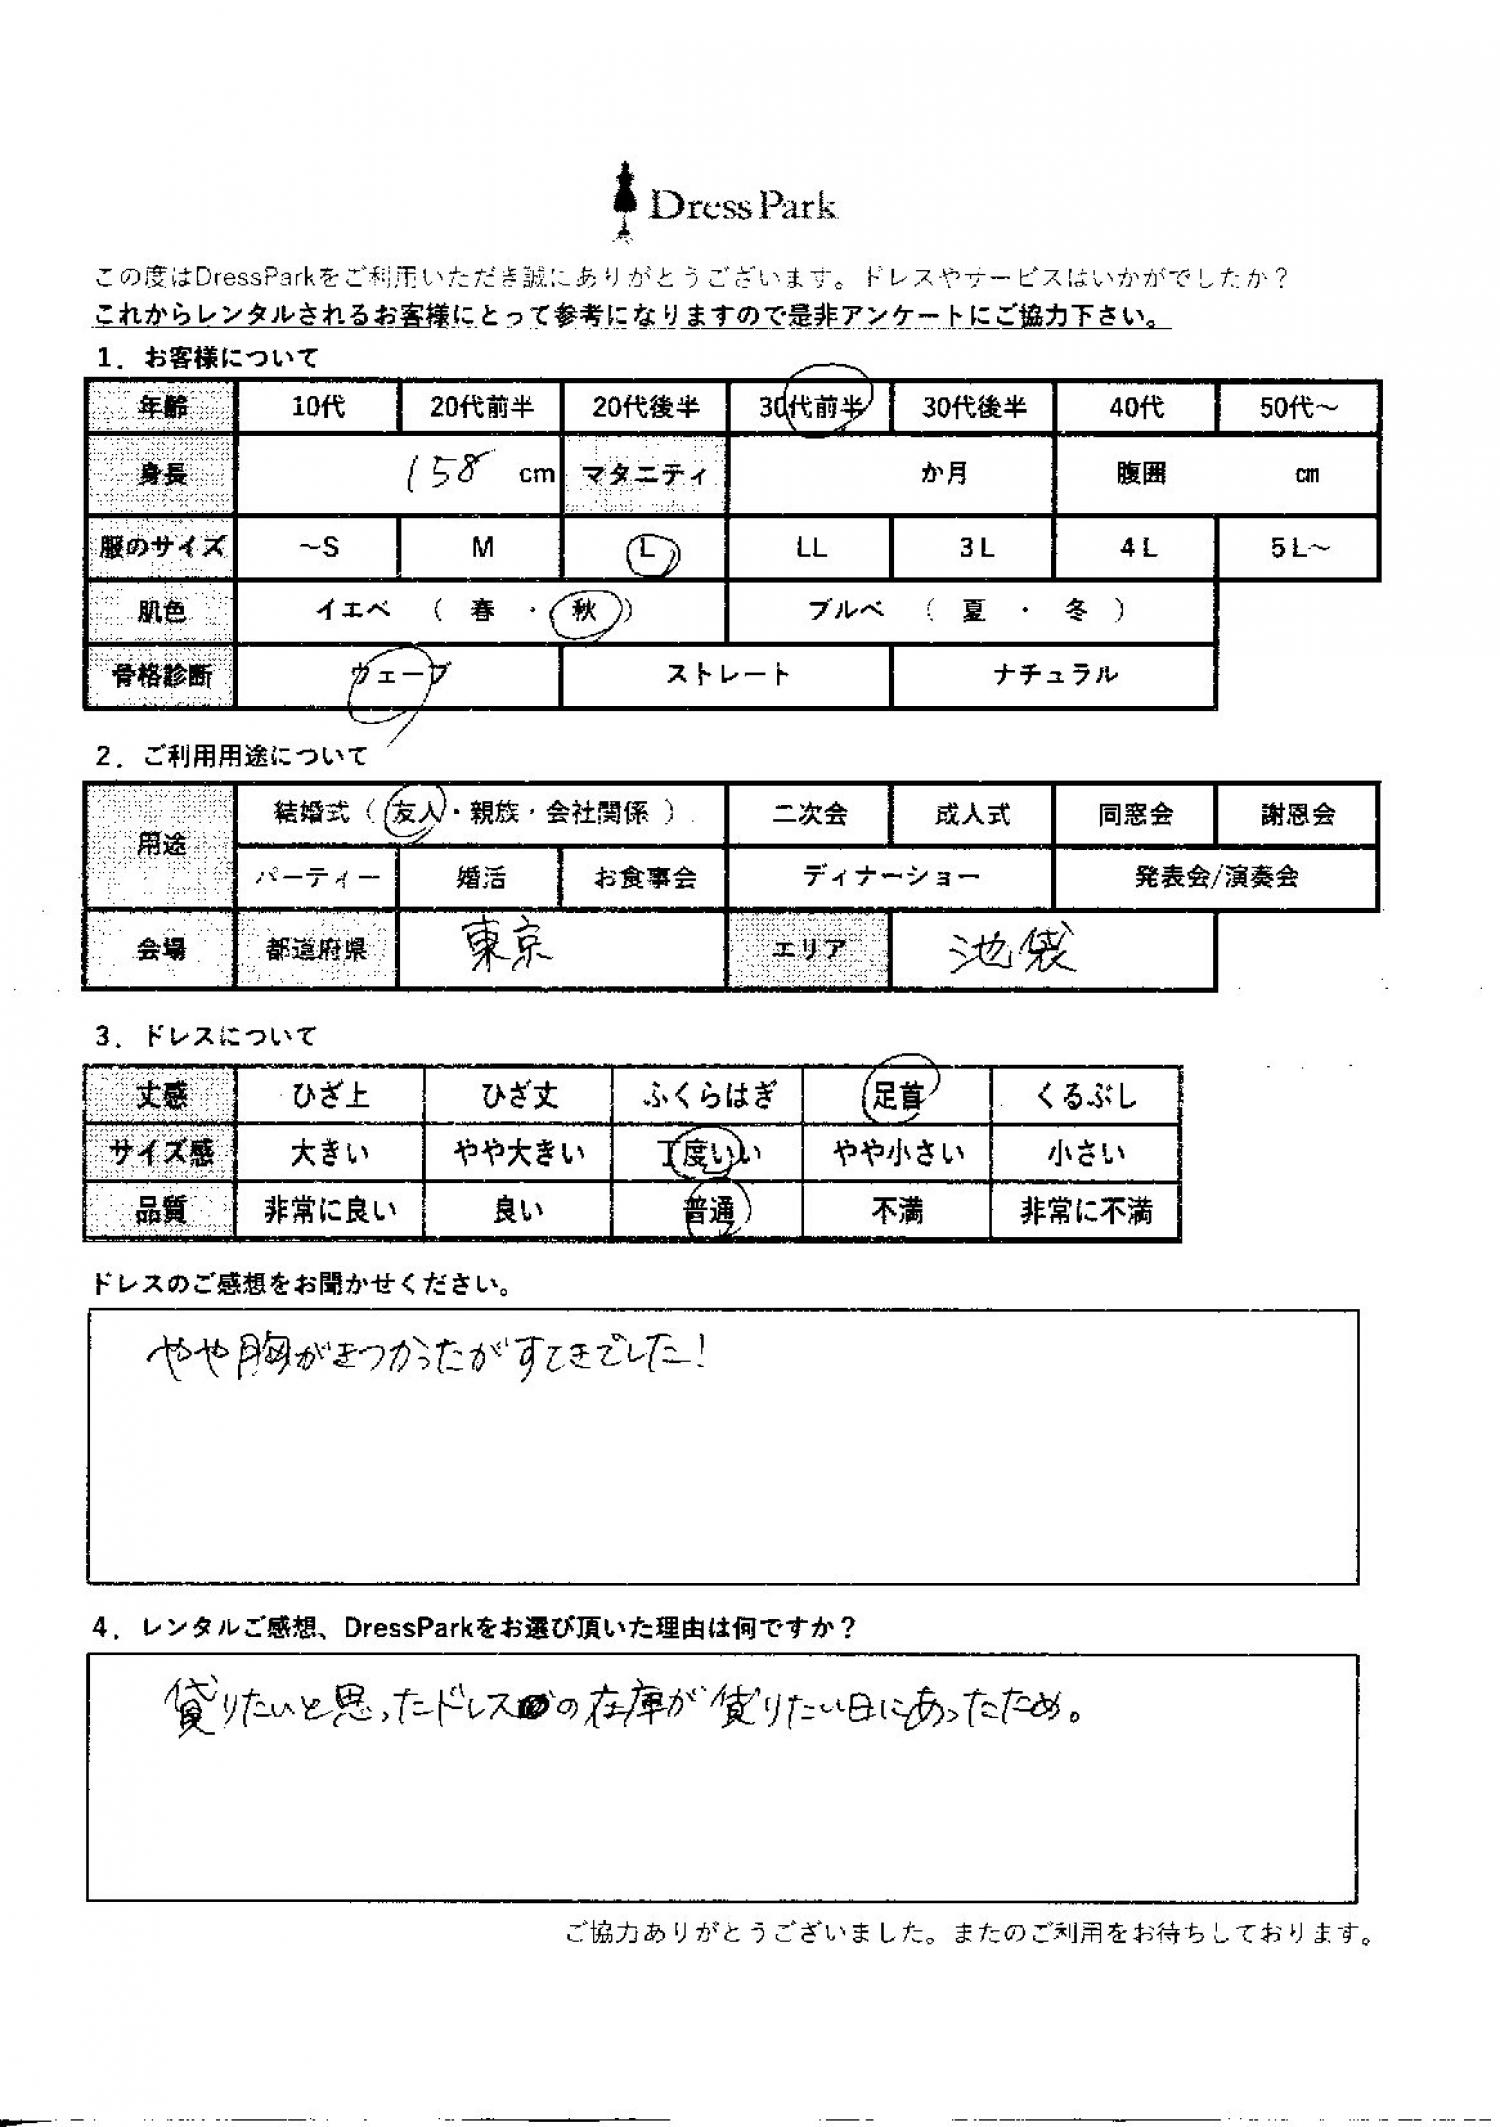 DressPark
この度はDressParkをご利用いただき誠にありがとうございます。ドレスやサービスはいかがでしたか？
これからレンタルされるお客様にとって参考になりますので是非アンケートにご協力下さい。
1．お客様について
年齢 10代 20代前半 20代後半 30代前半 30代後半 40代 50代～
身長 158 cm マタニティ か月 腹囲 cm
服のサイズ ～S M L LL 3L 4L 5L～
肌色 イエベ （ 春 ・ 秋 ） ブルベ （ 夏 ・ 冬 ）
骨格診断 ウェーブ ストレート ナチュラル
2．ご利用用途について
用途 結婚式（ 友人・親族・会社関係 ） 二次会 成人式 同窓会 謝恩会
パーティー 婚活 お食事会 ディナーショー 発表会/演奏会
会場 都道府県 東京 エリア 池袋
3．ドレスについて
丈感 ひざ上 ひざ丈 ふくらはぎ 足首 くるぶし
サイズ感 大きい やや大きい 丁度いい やや小さい 小さい
品質 非常に良い 良い 普通 不満 非常に不満
ドレスのご感想をお聞かせください。
やや胸がきつかったがすてきでした！
4．レンタルご感想、DressParkをお選び頂いた理由は何ですか？
貸りたいと思ったドレスの在庫が貸りたい日にあったため。
ご協力ありがとうございました。またのご利用をお待ちしております。